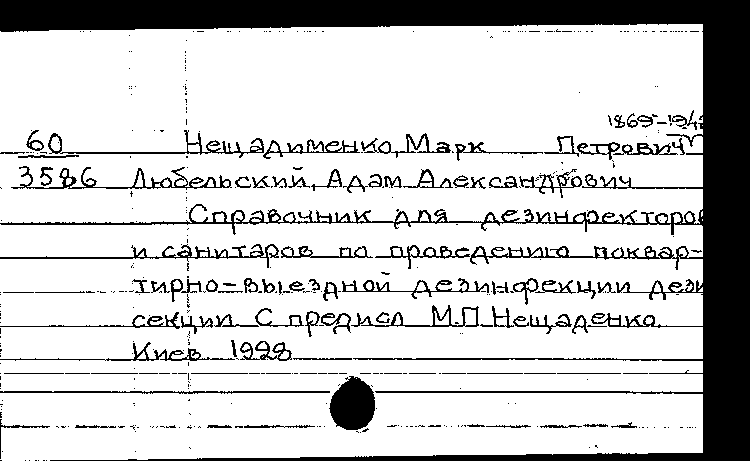 1869-194
60 Нещадименко, Марк Петрович
3586 Любельский, Адам Александрович
Справочник для дезинфекторов
и санитаров по проведению поквар-
тирно-выездной дезинфекции дези
секции. С предисл М.П. Нещаденко.
Киев 1928